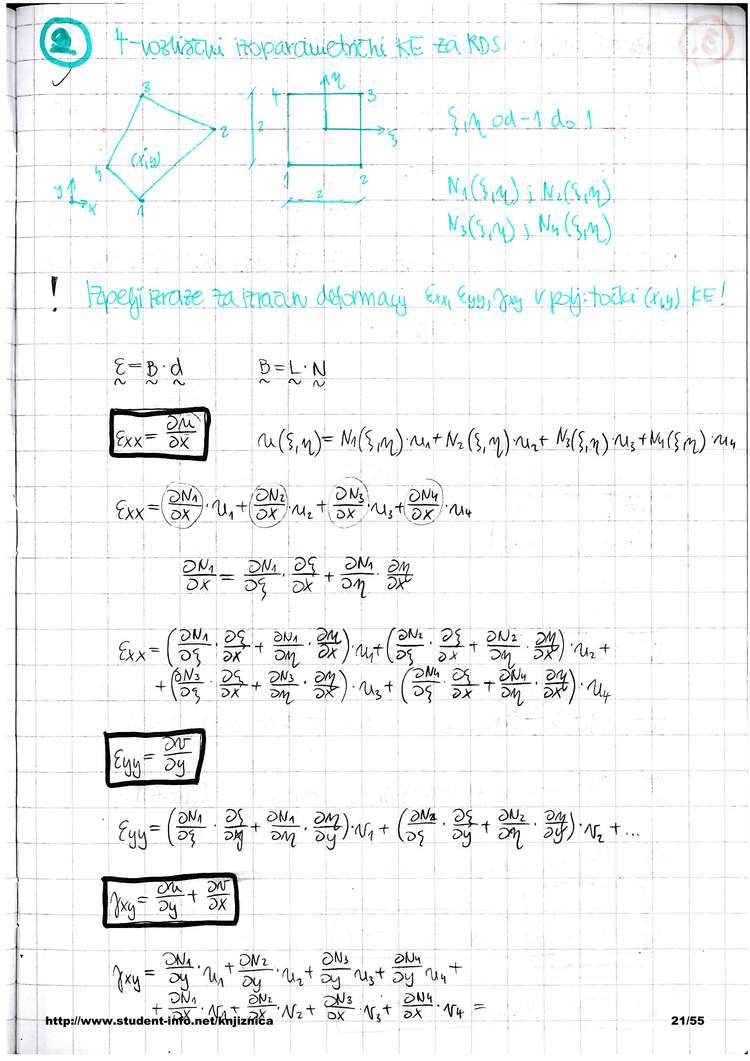 2. 4-vozliščni izoparametrični KE za RDS
3
2
4
1
(x,y)
y
x
4
3
1
2
η
ξ
2
2
ξ,η od -1 do 1
N₁(ξ,η) ; N₂(ξ,η)
N₃(ξ,η) ; N₄(ξ,η)
! Izpelji izraze za izračun deformacij εxx, εyy, γxy v polj. točki (x,y) KE!
ε = B · d B = L · N
εxx = ∂u/∂x u(ξ,η) = N₁(ξ,η)·u₁ + N₂(ξ,η)·u₂ + N₃(ξ,η)·u₃ + N₄(ξ,η)·u₄
εxx = ∂N₁/∂x · u₁ + ∂N₂/∂x · u₂ + ∂N₃/∂x · u₃ + ∂N₄/∂x · u₄
∂N₁/∂x = ∂N₁/∂ξ · ∂ξ/∂x + ∂N₁/∂η · ∂η/∂x
εxx = (∂N₁/∂ξ · ∂ξ/∂x + ∂N₁/∂η · ∂η/∂x)·u₁ + (∂N₂/∂ξ · ∂ξ/∂x + ∂N₂/∂η · ∂η/∂x)·u₂ +
+ (∂N₃/∂ξ · ∂ξ/∂x + ∂N₃/∂η · ∂η/∂x)·u₃ + (∂N₄/∂ξ · ∂ξ/∂x + ∂N₄/∂η · ∂η/∂x)·u₄
εyy = ∂v/∂y
εyy = (∂N₁/∂ξ · ∂ξ/∂y + ∂N₁/∂η · ∂η/∂y)·v₁ + (∂N₂/∂ξ · ∂ξ/∂y + ∂N₂/∂η · ∂η/∂y)·v₂ + ...
γxy = ∂u/∂y + ∂v/∂x
γxy = ∂N₁/∂y · u₁ + ∂N₂/∂y · u₂ + ∂N₃/∂y u₃ + ∂N₄/∂y u₄ +
+ ∂N₁/∂x · v₁ + ∂N₂/∂x · v₂ + ∂N₃/∂x · v₃ + ∂N₄/∂x · v₄ =
http://www.student-info.net/knjiznica 21/55